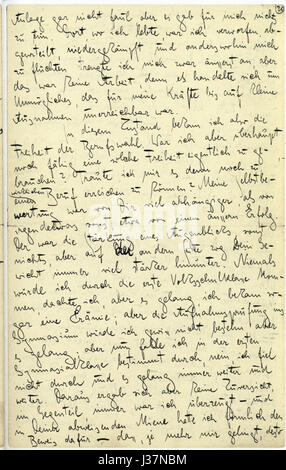 Anlage gar nicht faul, aber es gab für mich nichts
zu tun. Dort wo ich lebte war ich verworfen, ab-
geurteilt, niedergekämpft und anderswohin mich
zu flüchten strengte ich mich zwar äusserst an, aber
das war keine Arbeit denn es handelte sich um
Unmögliches das für meine Kräfte bis auf kleine
Ausnahmen unerreichbar war.
In diesem Zustand bekam ich also die
Freiheit der Berufswahl. War ich aber überhaupt
noch fähig eine solche Freiheit eigentlich zu ge-
brauchen? Traute ich mir es denn noch zu
einen wirklichen Beruf erreichen zu können? Meine Selbstbe-
wertung war von Dir viel abhängiger als von
irgendetwas sonst, etwa von einem äussern Erfolg.
Der war die Stärkung eines Augenblicks, sonst
nichts, aber auf der andern Seite zog Dein Ge-
wicht immer viel stärker hinunter. Niemals
würde ich durch die erste Volksschulklasse kom-
men, dachte ich, aber es gelang, ich bekam so-
gar eine Prämie; aber die Aufnahmsprüfung ins
Gymnasium würde ich gewiss nicht bestehn, aber
es gelang; aber nun falle ich in der ersten
Gymnasialklasse bestimmt durch, nein, ich fiel
nicht durch und es gelang immer weiter und
weiter. Daraus ergab sich aber keine Zuversicht,
im Gegenteil, immer war ich überzeugt – und
in Deiner abweisenden Miene hatte ich förmlich den
Beweis dafür – dass, je mehr mir gelingt, desto
J37NBM